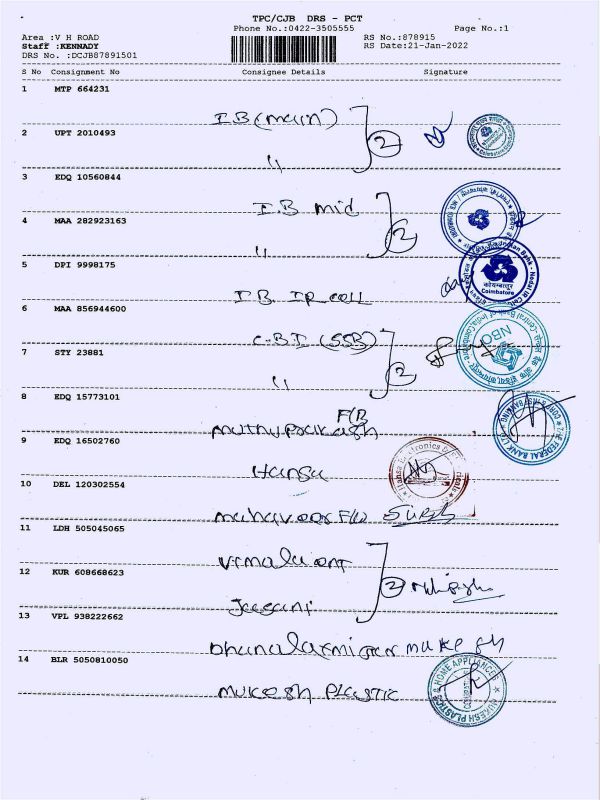 TPC/CJB DRS - PCT
Phone No.:0422-3505555
Page No.:1
Area :V H ROAD
RS No.:878915
Staff :KENNADY
RS Date:21-Jan-2022
DRS No. :DCJB87891501
S No Consignment No Consignee Details Signature
1 MTP 664231
I B (main)
2 UPT 2010493
"
2
3 EDQ 10560844
I.B mid
4 MAA 282923163
"
2
5 DPI 9998175
I.B. IR cell
6 MAA 856944600
C.B.I (SSB)
7 STY 23881
"
2
8 EDQ 15773101
muthuprakash F/B
9 EDQ 16502760
Hansa
10 DEL 120302554
11 LDH 505045065
12 KUR 608668623
2
13 VPL 938222662
mukesh
14 BLR 5050810050
mukesh Plastic
कोयम्बतूर
Coimbatore
NBO
Central Bank of India, Coimbatore
THE FEDERAL BANK LTD
MUKESH PLASTICS & HOME APPLIANCES